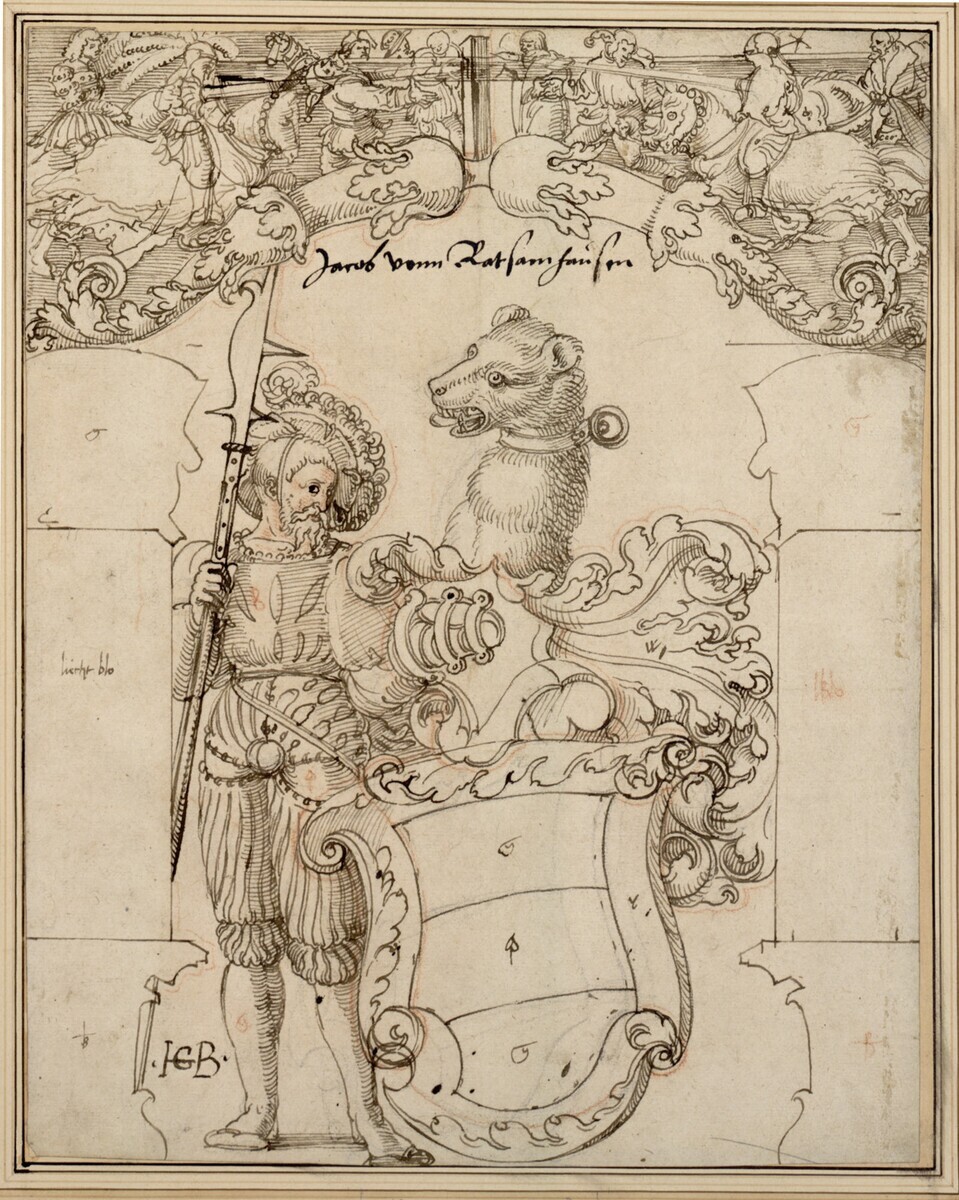 Jacob vonn Ratsamhausen
W
liecht blo
lblo
B
HGB